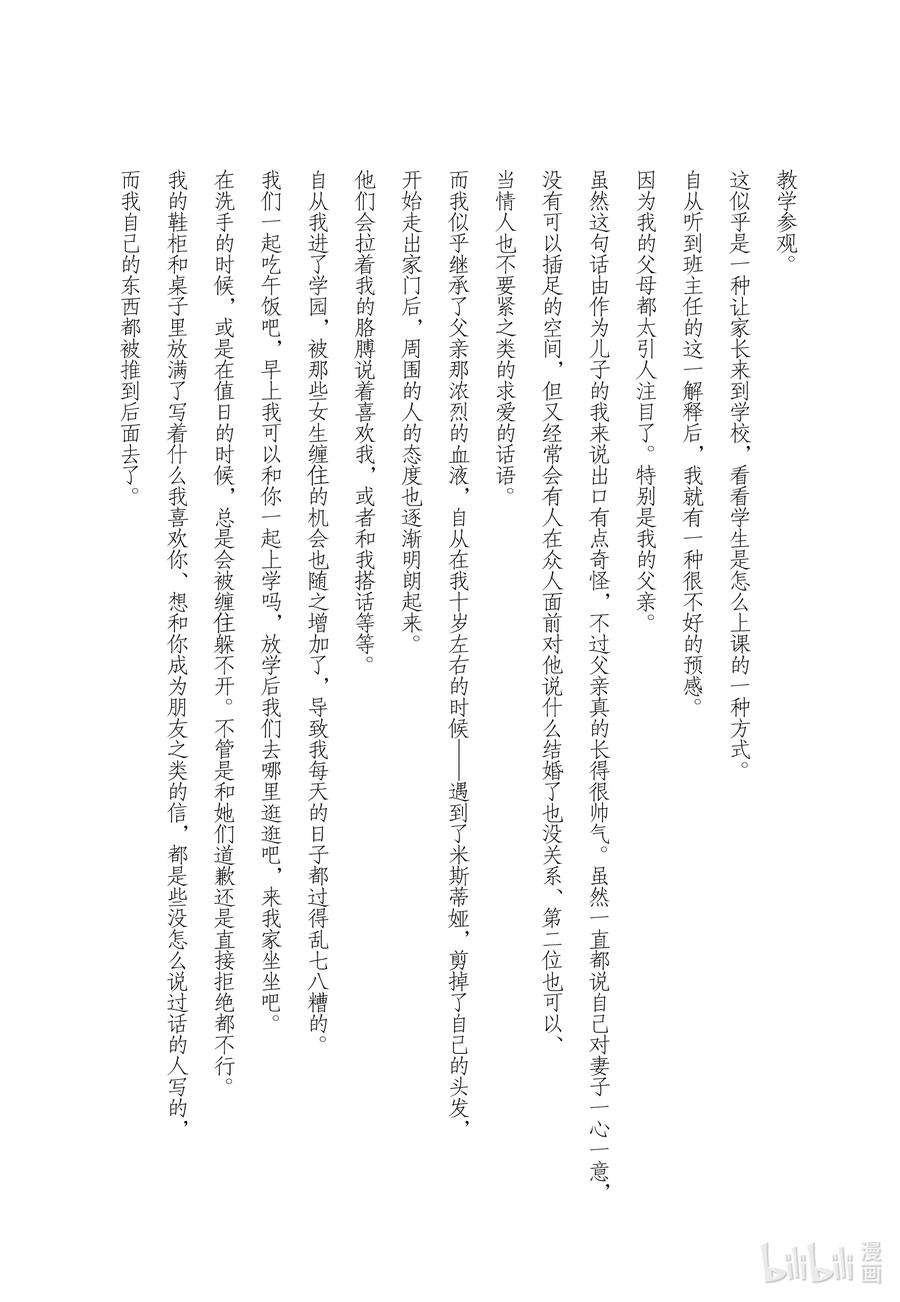 教学参观。
这似乎是一种让家长来到学校，看看学生是怎么上课的一种方式。
自从听到班主任的这一解释后，我就有一种很不好的预感。
因为我的父母都太引人注目了。特别是我的父亲。
虽然这句话由作为儿子的我来说出口有点奇怪，不过父亲真的长得很帅气。虽然一直都说自己对妻子一心一意，
没有可以插足的空间，但又经常会有人在众人面前对他说什么结婚了也没关系、第二位也可以、
当情人也不要紧之类的求爱的话语。
而我似乎继承了父亲那浓烈的血液，自从在我十岁左右的时候——遇到了米斯蒂娅，剪掉了自己的头发，
开始走出家门后，周围的人的态度也逐渐明朗起来。
他们会拉着我的胳膊说着喜欢我，或者和我搭话等等。
自从我进了学园，被那些女生缠住的机会也随之增加了，导致我每天的日子都过得乱七八糟的。
我们一起吃午饭吧，早上我可以和你一起上学吗，放学后我们去哪里逛逛吧，来我家坐坐吧。
在洗手的时候，或是在值日的时候，总是会被缠住躲不开。不管是和她们道歉还是直接拒绝都不行。
我的鞋柜和桌子里放满了写着什么我喜欢你、想和你成为朋友之类的信，都是些没怎么说过话的人写的，
而我自己的东西都被推到后面去了。
bilibili 漫画